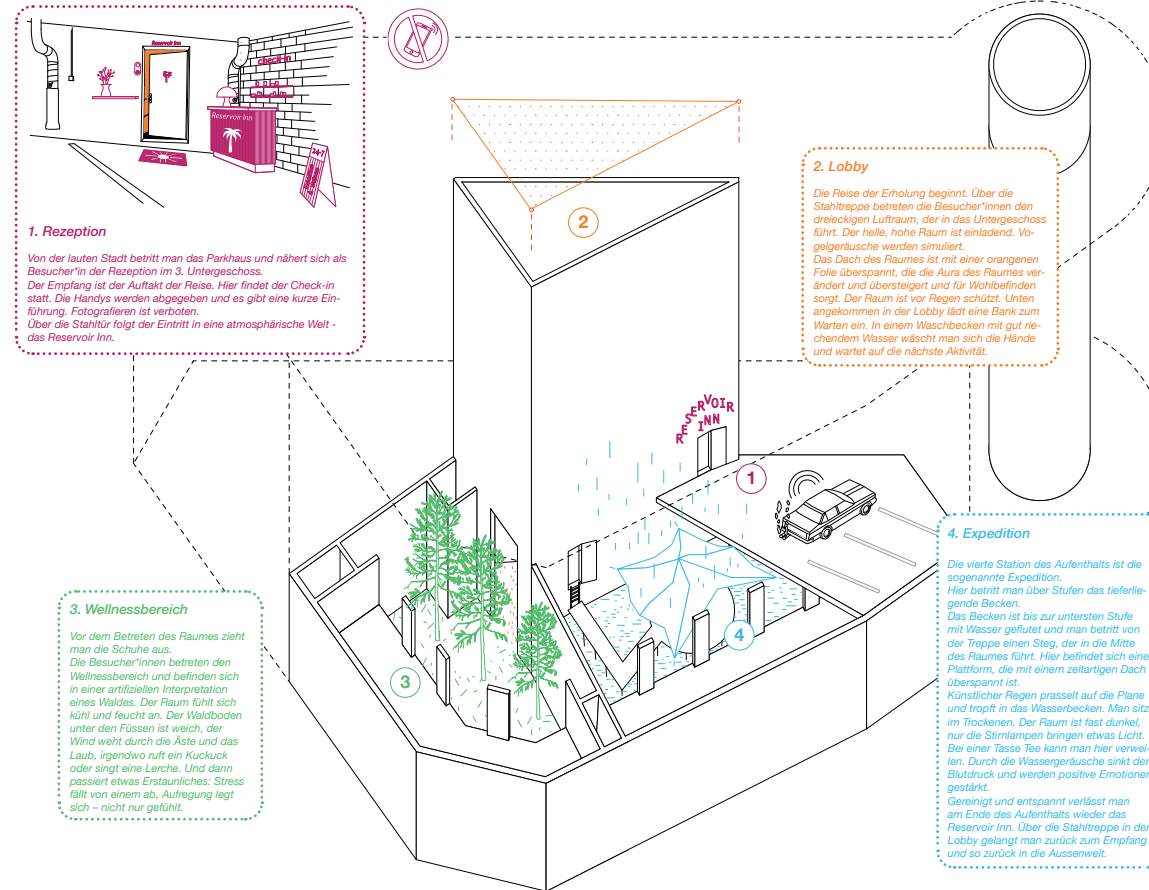 Reservoir Inn
check-in
Reservoir Inn
24-7
1. Rezeption
Von der lauten Stadt betritt man das Parkhaus und nähert sich als
Besucher*in der Rezeption im 3. Untergeschoss.
Der Empfang ist der Auftakt der Reise. Hier findet der Check-in
statt. Die Handys werden abgegeben und es gibt eine kurze Ein-
führung. Fotografieren ist verboten.
Über die Stahltür folgt der Eintritt in eine atmosphärische Welt -
das Reservoir Inn.
2
2. Lobby
Die Reise der Erholung beginnt. Über die
Stahltreppe betreten die Besucher*innen den
dreieckigen Luftraum, der in das Untergeschoss
führt. Der helle, hohe Raum ist einladend. Vo-
gelgeräusche werden simuliert.
Das Dach des Raumes ist mit einer orangenen
Folie überspannt, die die Aura des Raumes ver-
ändert und übersteigert und für Wohlbefinden
sorgt. Der Raum ist vor Regen schützt. Unten
angekommen in der Lobby lädt eine Bank zum
Warten ein. In einem Waschbecken mit gut rie-
chendem Wasser wäscht man sich die Hände
und wartet auf die nächste Aktivität.
RESERVOIR
INN
1
3. Wellnessbereich
Vor dem Betreten des Raumes zieht
man die Schuhe aus.
Die Besucher*innen betreten den
Wellnessbereich und befinden sich
in einer artifiziellen Interpretation
eines Waldes. Der Raum fühlt sich
kühl und feucht an. Der Waldboden
unter den Füssen ist weich, der
Wind weht durch die Äste und das
Laub, irgendwo ruft ein Kuckuck
oder singt eine Lerche. Und dann
passiert etwas Erstaunliches: Stress
fällt von einem ab, Aufregung legt
sich – nicht nur gefühlt.
3
4
4. Expedition
Die vierte Station des Aufenthalts ist die
sogenannte Expedition.
Hier betritt man über Stufen das tieferlie-
gende Becken.
Das Becken ist bis zur untersten Stufe
mit Wasser geflutet und man betritt von
der Treppe einen Steg, der in die Mitte
des Raumes führt. Hier befindet sich eine
Plattform, die mit einem zeltartigen Dach
überspannt ist.
Künstlicher Regen prasselt auf die Plane
und tropft in das Wasserbecken. Man sitz
im Trockenen. Der Raum ist fast dunkel,
nur die Stirnlampen bringen etwas Licht.
Bei einer Tasse Tee kann man hier verwei-
len. Durch die Wassergeräusche sinkt der
Blutdruck und werden positive Emotionen
gestärkt.
Gereinigt und entspannt verlässt man
am Ende des Aufenthalts wieder das
Reservoir Inn. Über die Stahltreppe in der
Lobby gelangt man zurück zum Empfang
und so zurück in die Aussenwelt.